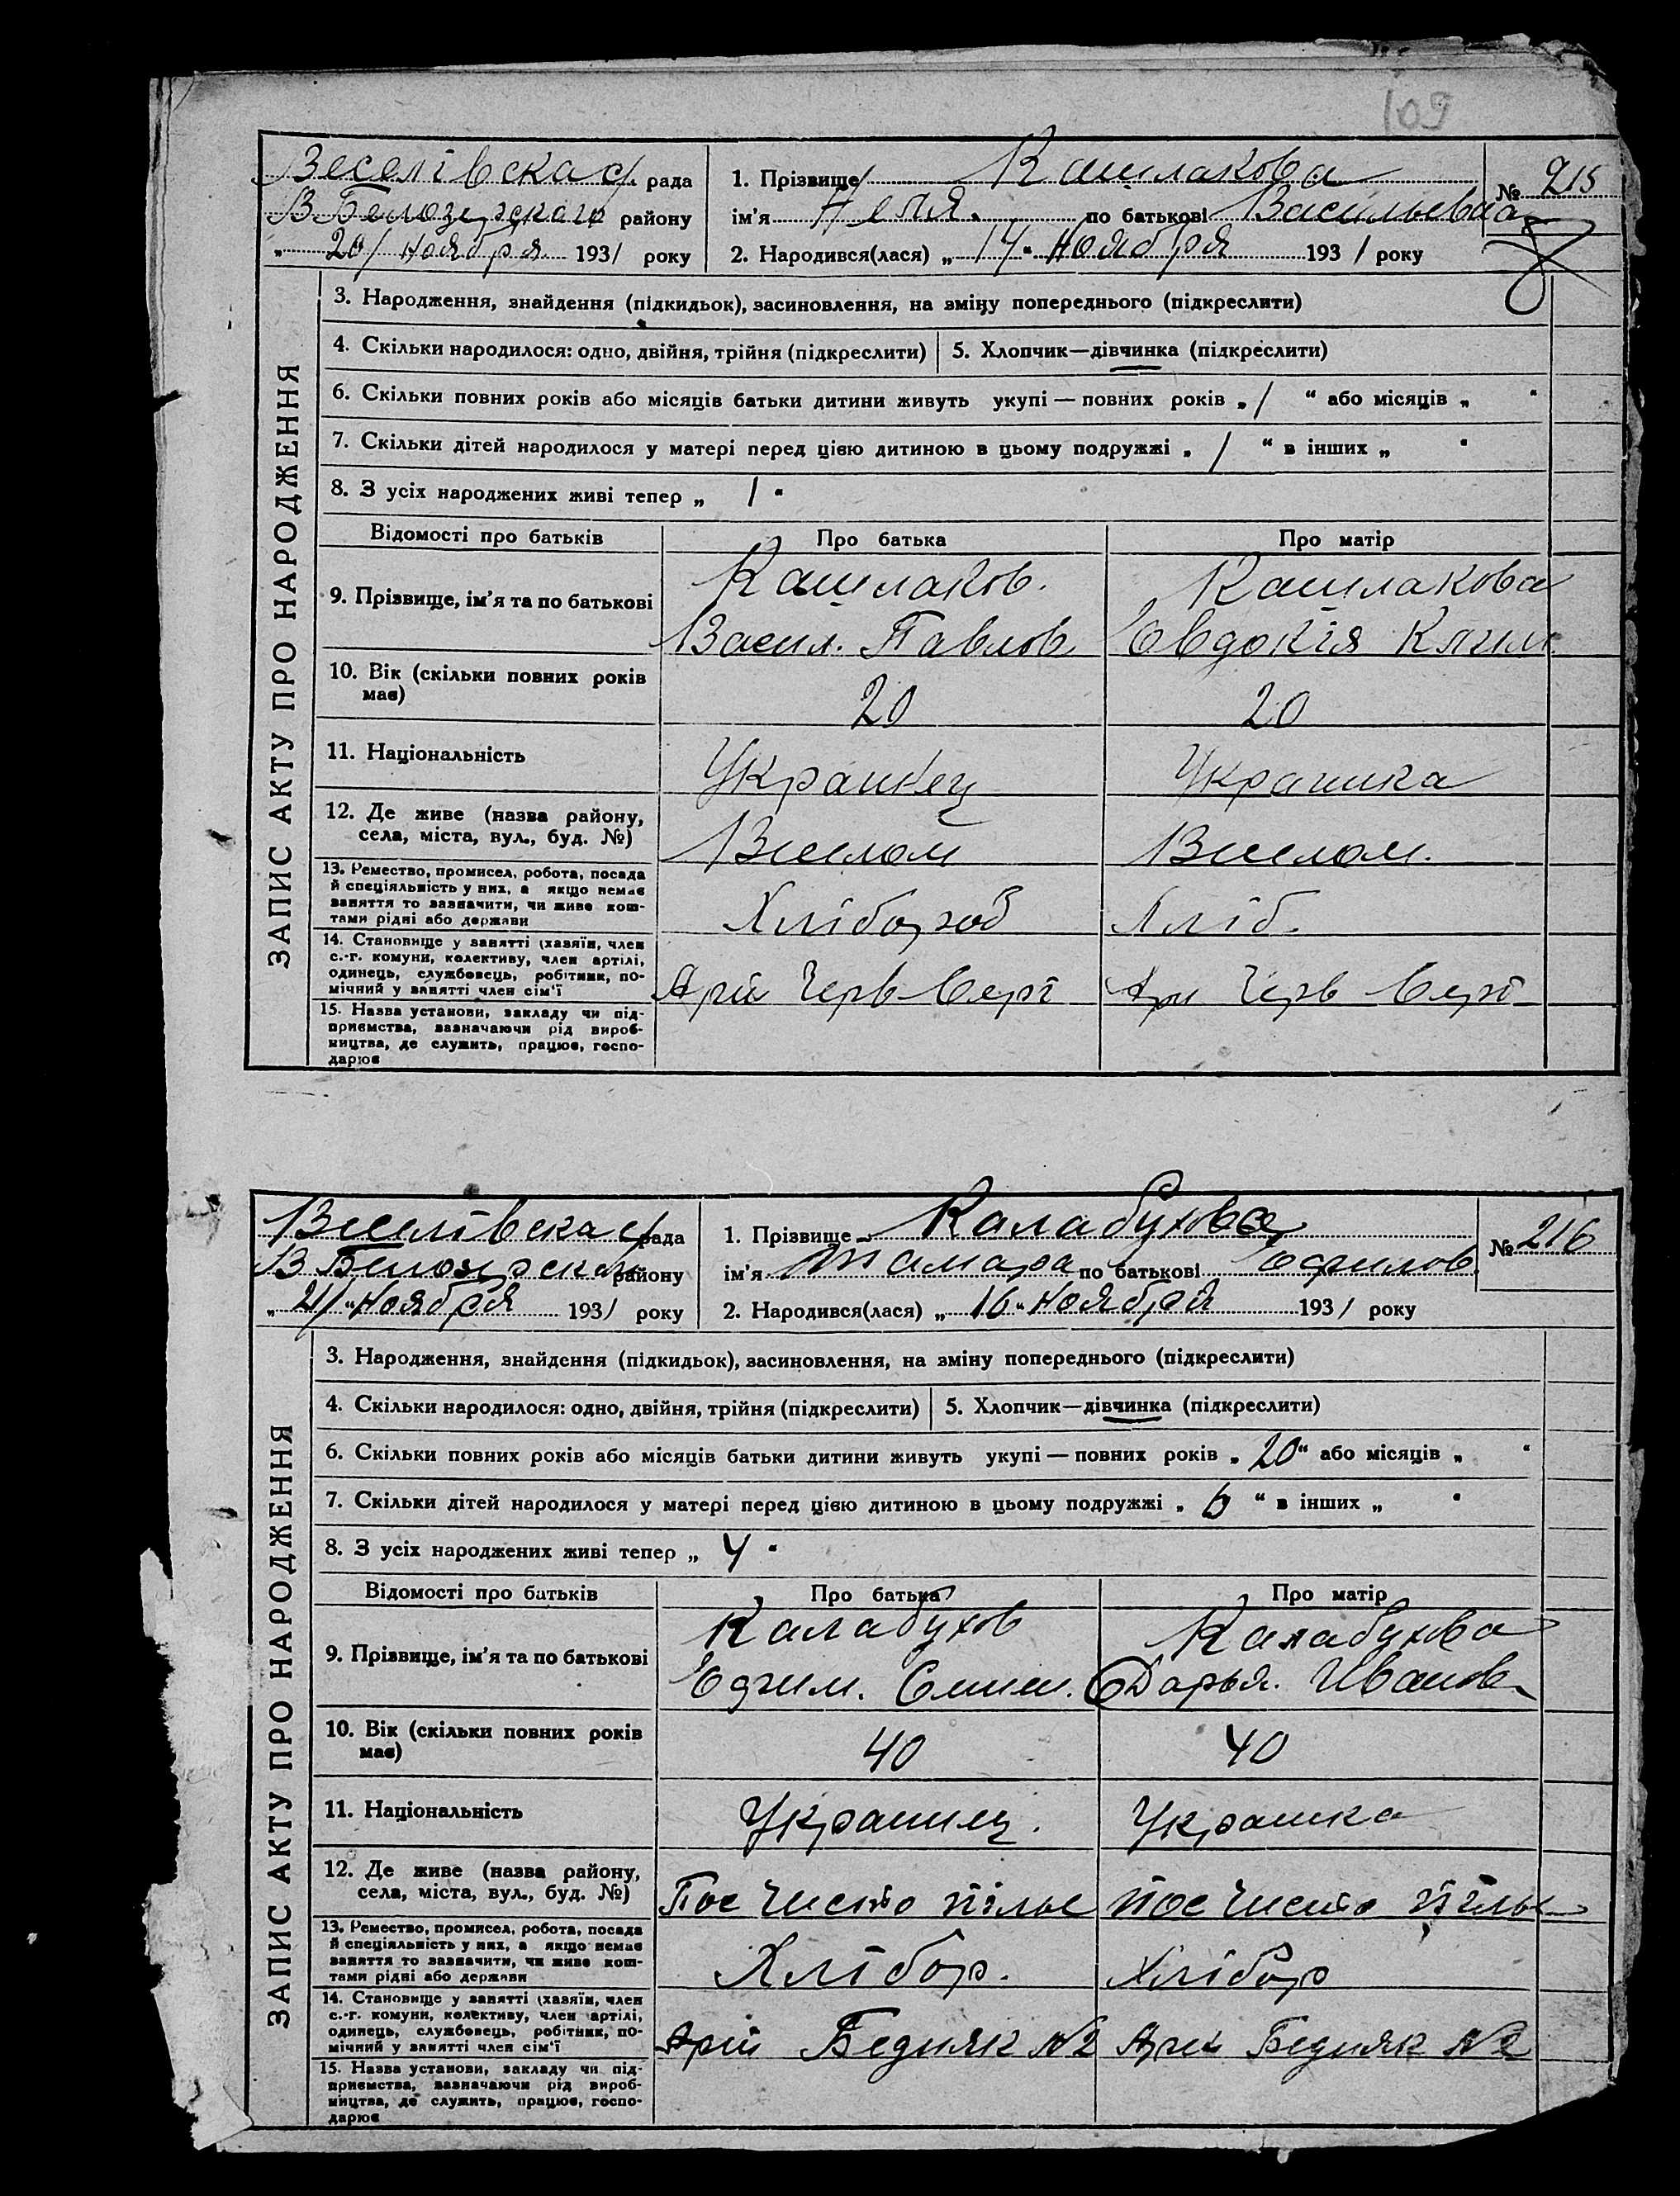 109
Веселівска с/ рада
В Белозерского району
„ 20/ ноября 1931 року
1. Прізвище Кашлакова
ім'я Неля. по батькові Васильевна
2. Народився(лася) „ 14 " Ноября 1931 року
№ 215
ЗАПИС АКТУ ПРО НАРОДЖЕННЯ
3. Народження, знайдення (підкидьок), засиновлення, на зміну попереднього (підкреслити)
4. Скільки народилося: одно, двійня, трійня (підкреслити) 5. Хлопчик—дівчинка (підкреслити)
6. Скільки повних років або місяців батьки дитини живуть укупі — повних років „ 1 “ або місяців „ “
7. Скільки дітей народилося у матері перед цією дитиною в цьому подружжі „ 1 “ в інших „ “
8. З усіх народжених живі тепер „ 1 “
Відомості про батьків Про батька Про матір
9. Прізвище, ім'я та по батькові
Кашлаков. Кашлакова
Васил. Павлов Евдокія Клим.
10. Вік (скільки повних років
має)
20 20
11. Національність
Украинец Украинка
12. Де живе (назва району,
села, міста, вул., буд. №)
13. Ремество, промисел, робота, посада
й спеціяльність у них, а якщо немає
заняття то зазначити, чи живе кош-
тами рідні або держави
Хлібороб Хліб.
14. Становище у занятті (хазяїн, член
с.-г. комуни, колективу, член артілі,
одинець, службовець, робітник, по-
мічний у занятті член сім'ї
Черв Черв
15. Назва установи, закладу чи під-
приємства, зазначаючи рід вироб-
ництва, де служить, працює, госпо-
дарює
Веселівска с/ рада
В Белозерском району
„ 21/ " Ноября 1931 року
1. Прізвище Калабухова
ім'я Тамара по батькові Ефимов.
2. Народився(лася) „ 16 " Ноября 1931 року
№ 216
ЗАПИС АКТУ ПРО НАРОДЖЕННЯ
3. Народження, знайдення (підкидьок), засиновлення, на зміну попереднього (підкреслити)
4. Скільки народилося: одно, двійня, трійня (підкреслити) 5. Хлопчик—дівчинка (підкреслити)
6. Скільки повних років або місяців батьки дитини живуть укупі — повних років „ 20 “ або місяців „ “
7. Скільки дітей народилося у матері перед цією дитиною в цьому подружжі „ “ в інших „ “
8. З усіх народжених живі тепер „ 4 “
Відомості про батьків Про батька Про матір
9. Прізвище, ім'я та по батькові
Калабухов Калабухова
Ефим. Дарья. Иванов.
10. Вік (скільки повних років
має)
40 40
11. Національність
Украинец. Украинка
12. Де живе (назва району,
села, міста, вул., буд. №)
Пос Чисто Пілье Пос Чисто Пілье
13. Ремество, промисел, робота, посада
й спеціяльність у них, а якщо немає
заняття то зазначити, чи живе кош-
тами рідні або держави
Хлібор. Хлібор
14. Становище у занятті (хазяїн, член
с.-г. комуни, колективу, член артілі,
одинець, службовець, робітник, по-
мічний у занятті член сім'ї
Бедняк №2 Бедняк №2
15. Назва установи, закладу чи під-
приємства, зазначаючи рід вироб-
ництва, де служить, працює, госпо-
дарює